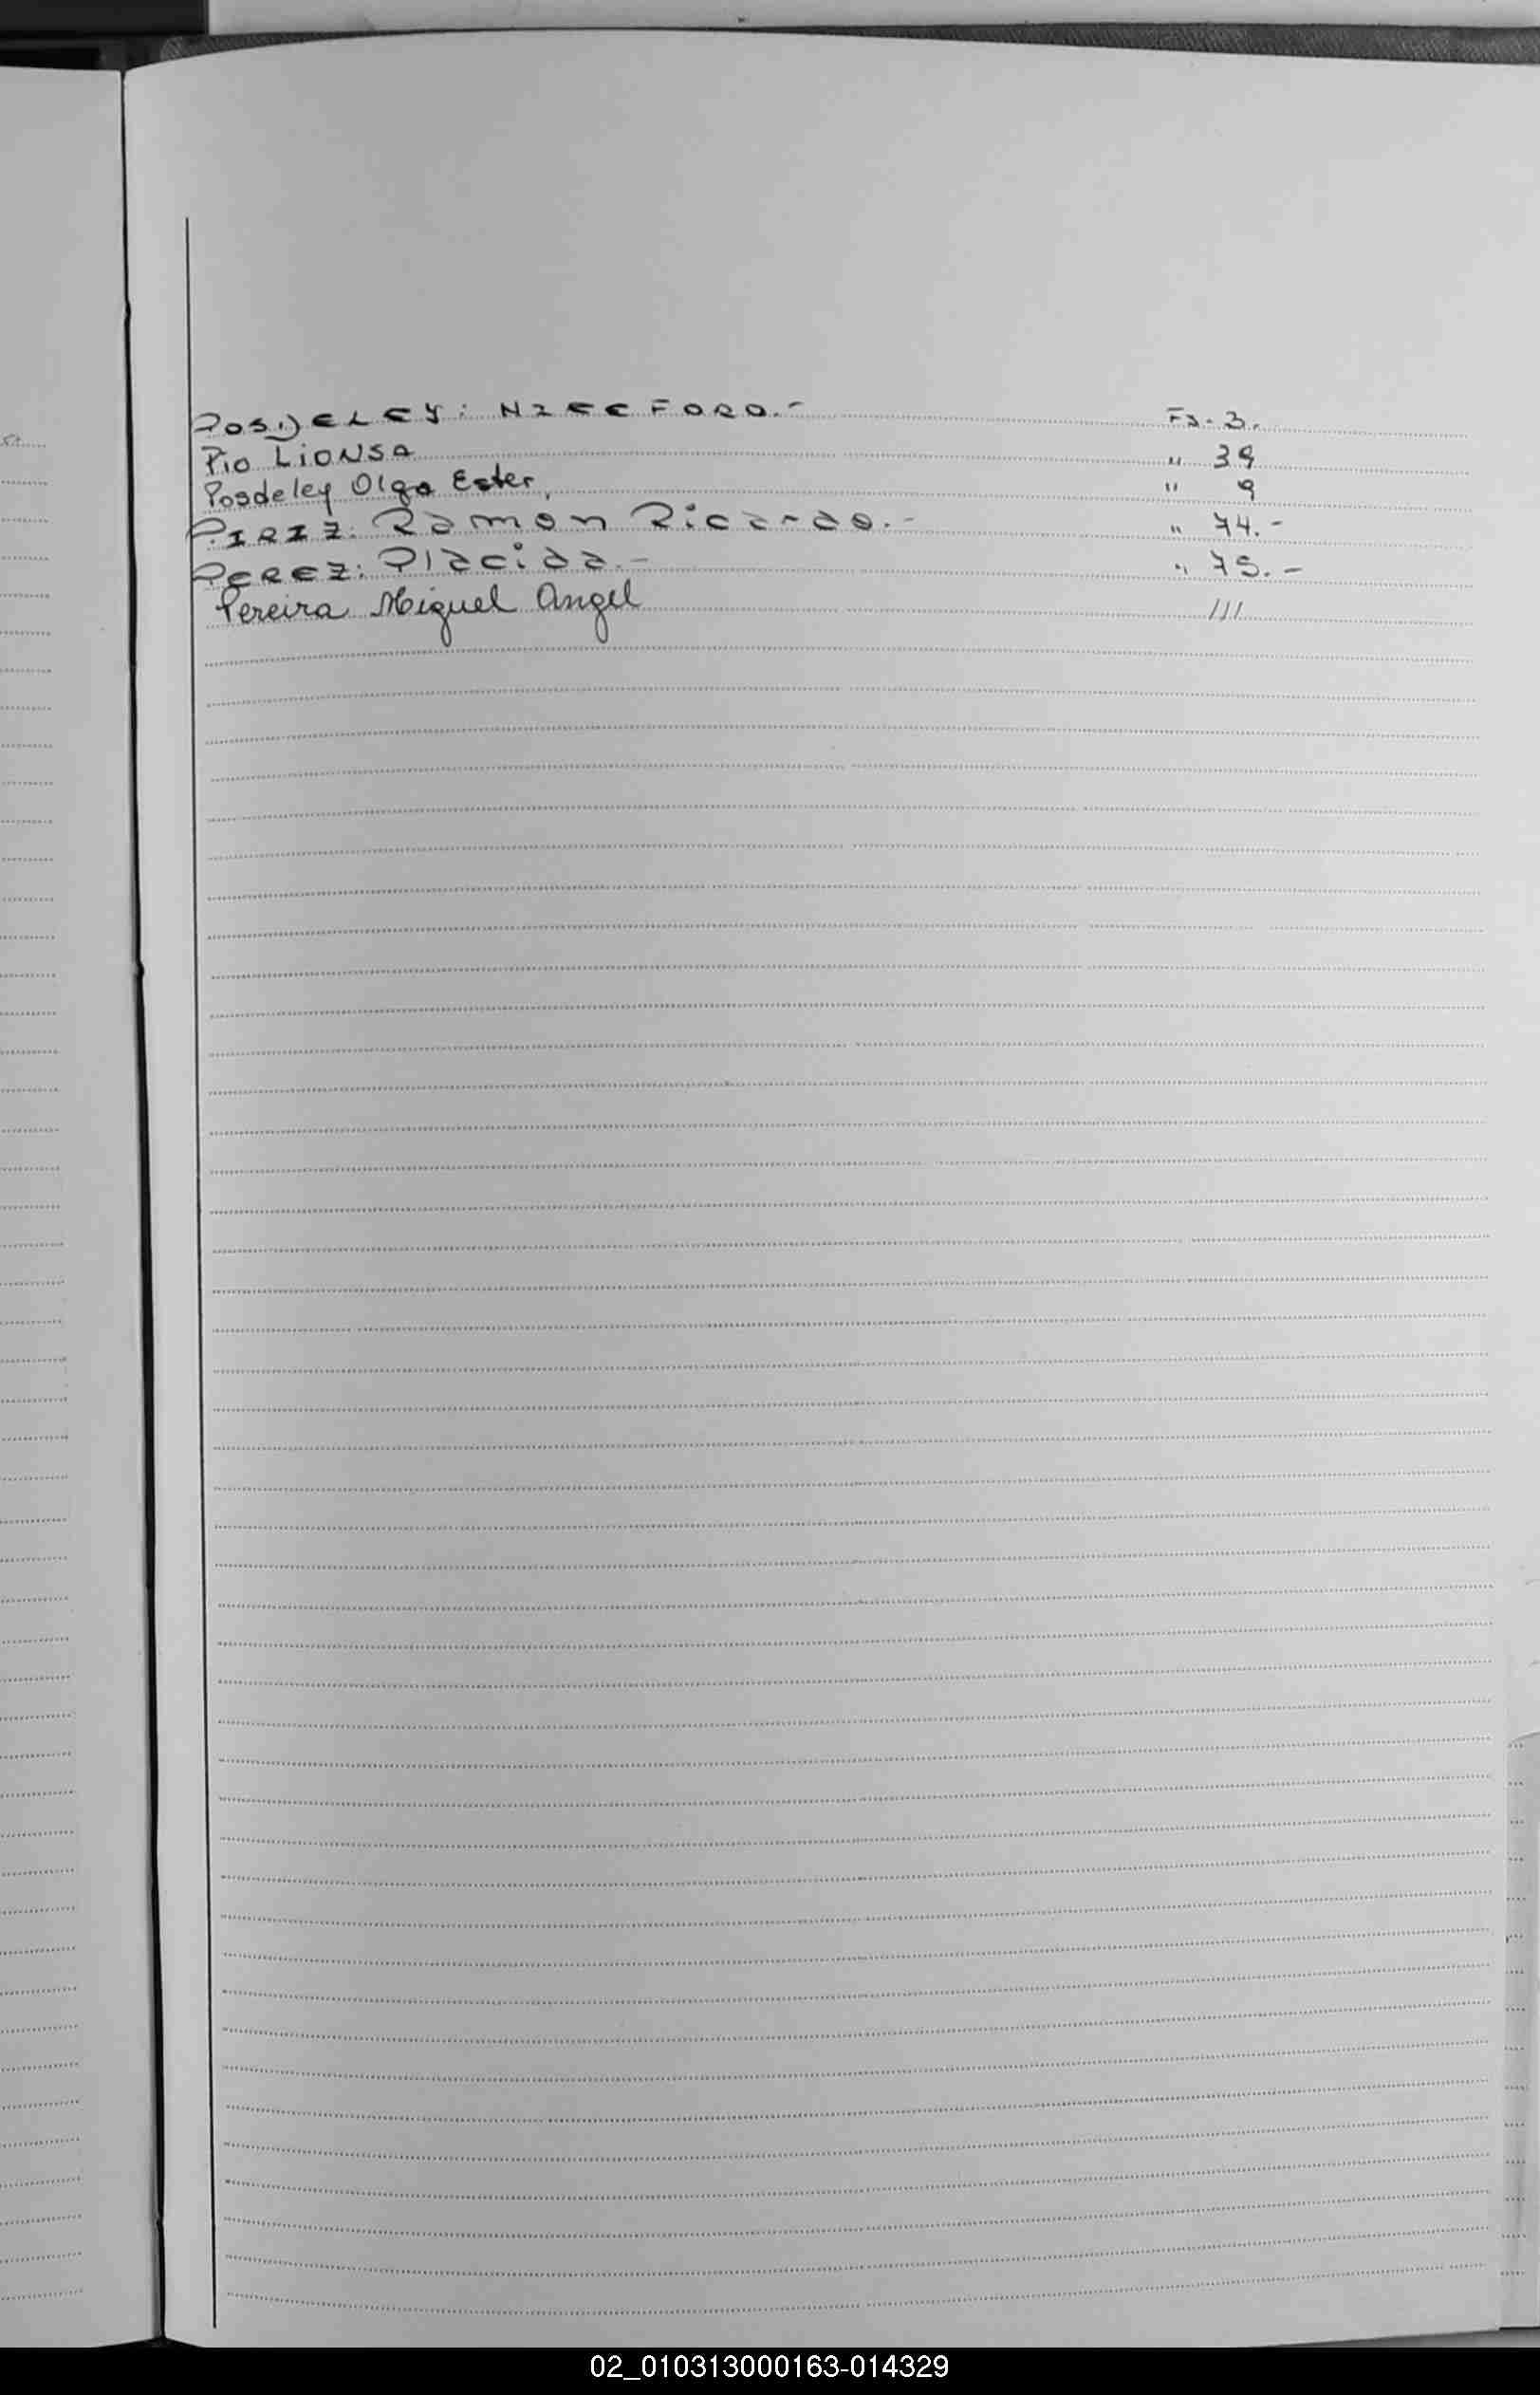 POSDELEY: NICEFORO.- Fs. 3.
Pio Lionsa " 39
Posdeley Olga Ester, " 9
PIRIZ: Ramon Ricardo.- " 74.-
PEREZ: Placida.- " 75.-
Pereira Miguel Angel 111
02_010313000163-014329